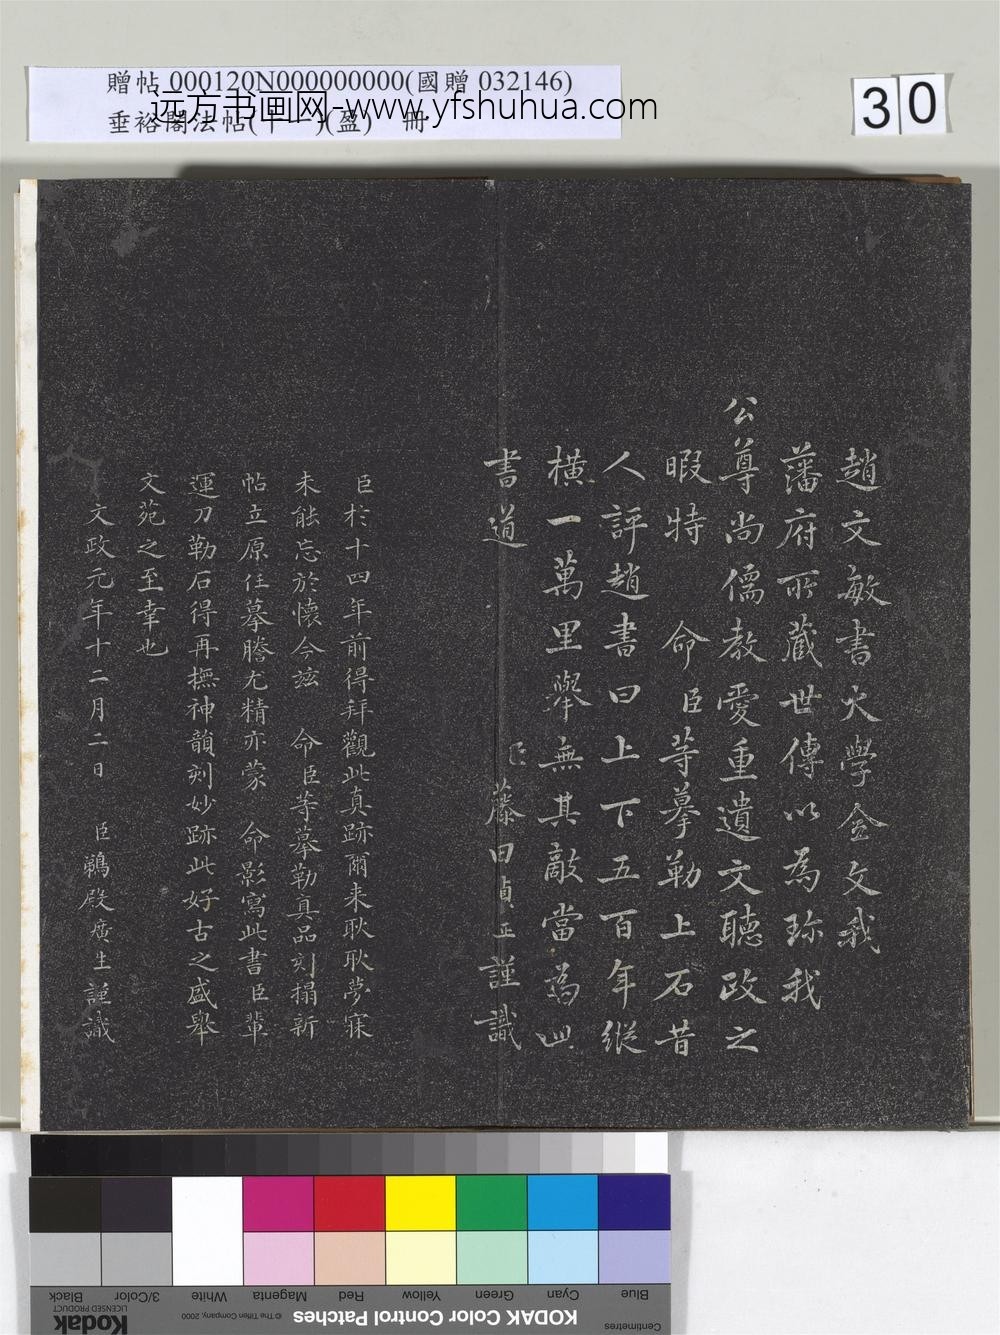 贈帖 000120N000000000(國贈 032146)
垂裕閣法帖(十一)(盈) 冊
远方书画网-www.yfshuhua.com
30
趙文敏書大學全文我
藩府所藏世傳以為珎我
公尊尚儒教愛重遺文聽政之
暇特 命臣等摹勒上石昔
人評趙書曰上下五百年縱
橫一萬里舉無其敵當為此
書道
臣藤田貞正謹識
臣於十四年前得拜觀此真跡爾来耿耿夢寐
未能忘於懷今茲 命臣等摹勒真品刻搨新
帖立原任摹謄尤精亦蒙 命影寫此書臣輩
運刀勒石得再撫神韻刻妙跡此好古之盛舉
文苑之至幸也
文政元年十二月二日 臣鵜殿廣生謹識
Black
3/Color
White
Magenta
Red
Yellow
Green
Cyan
Blue
Kodak
LICENSED PRODUCT
© The Tiffen Company, 2000
KODAK Color Control Patches
Centimetres